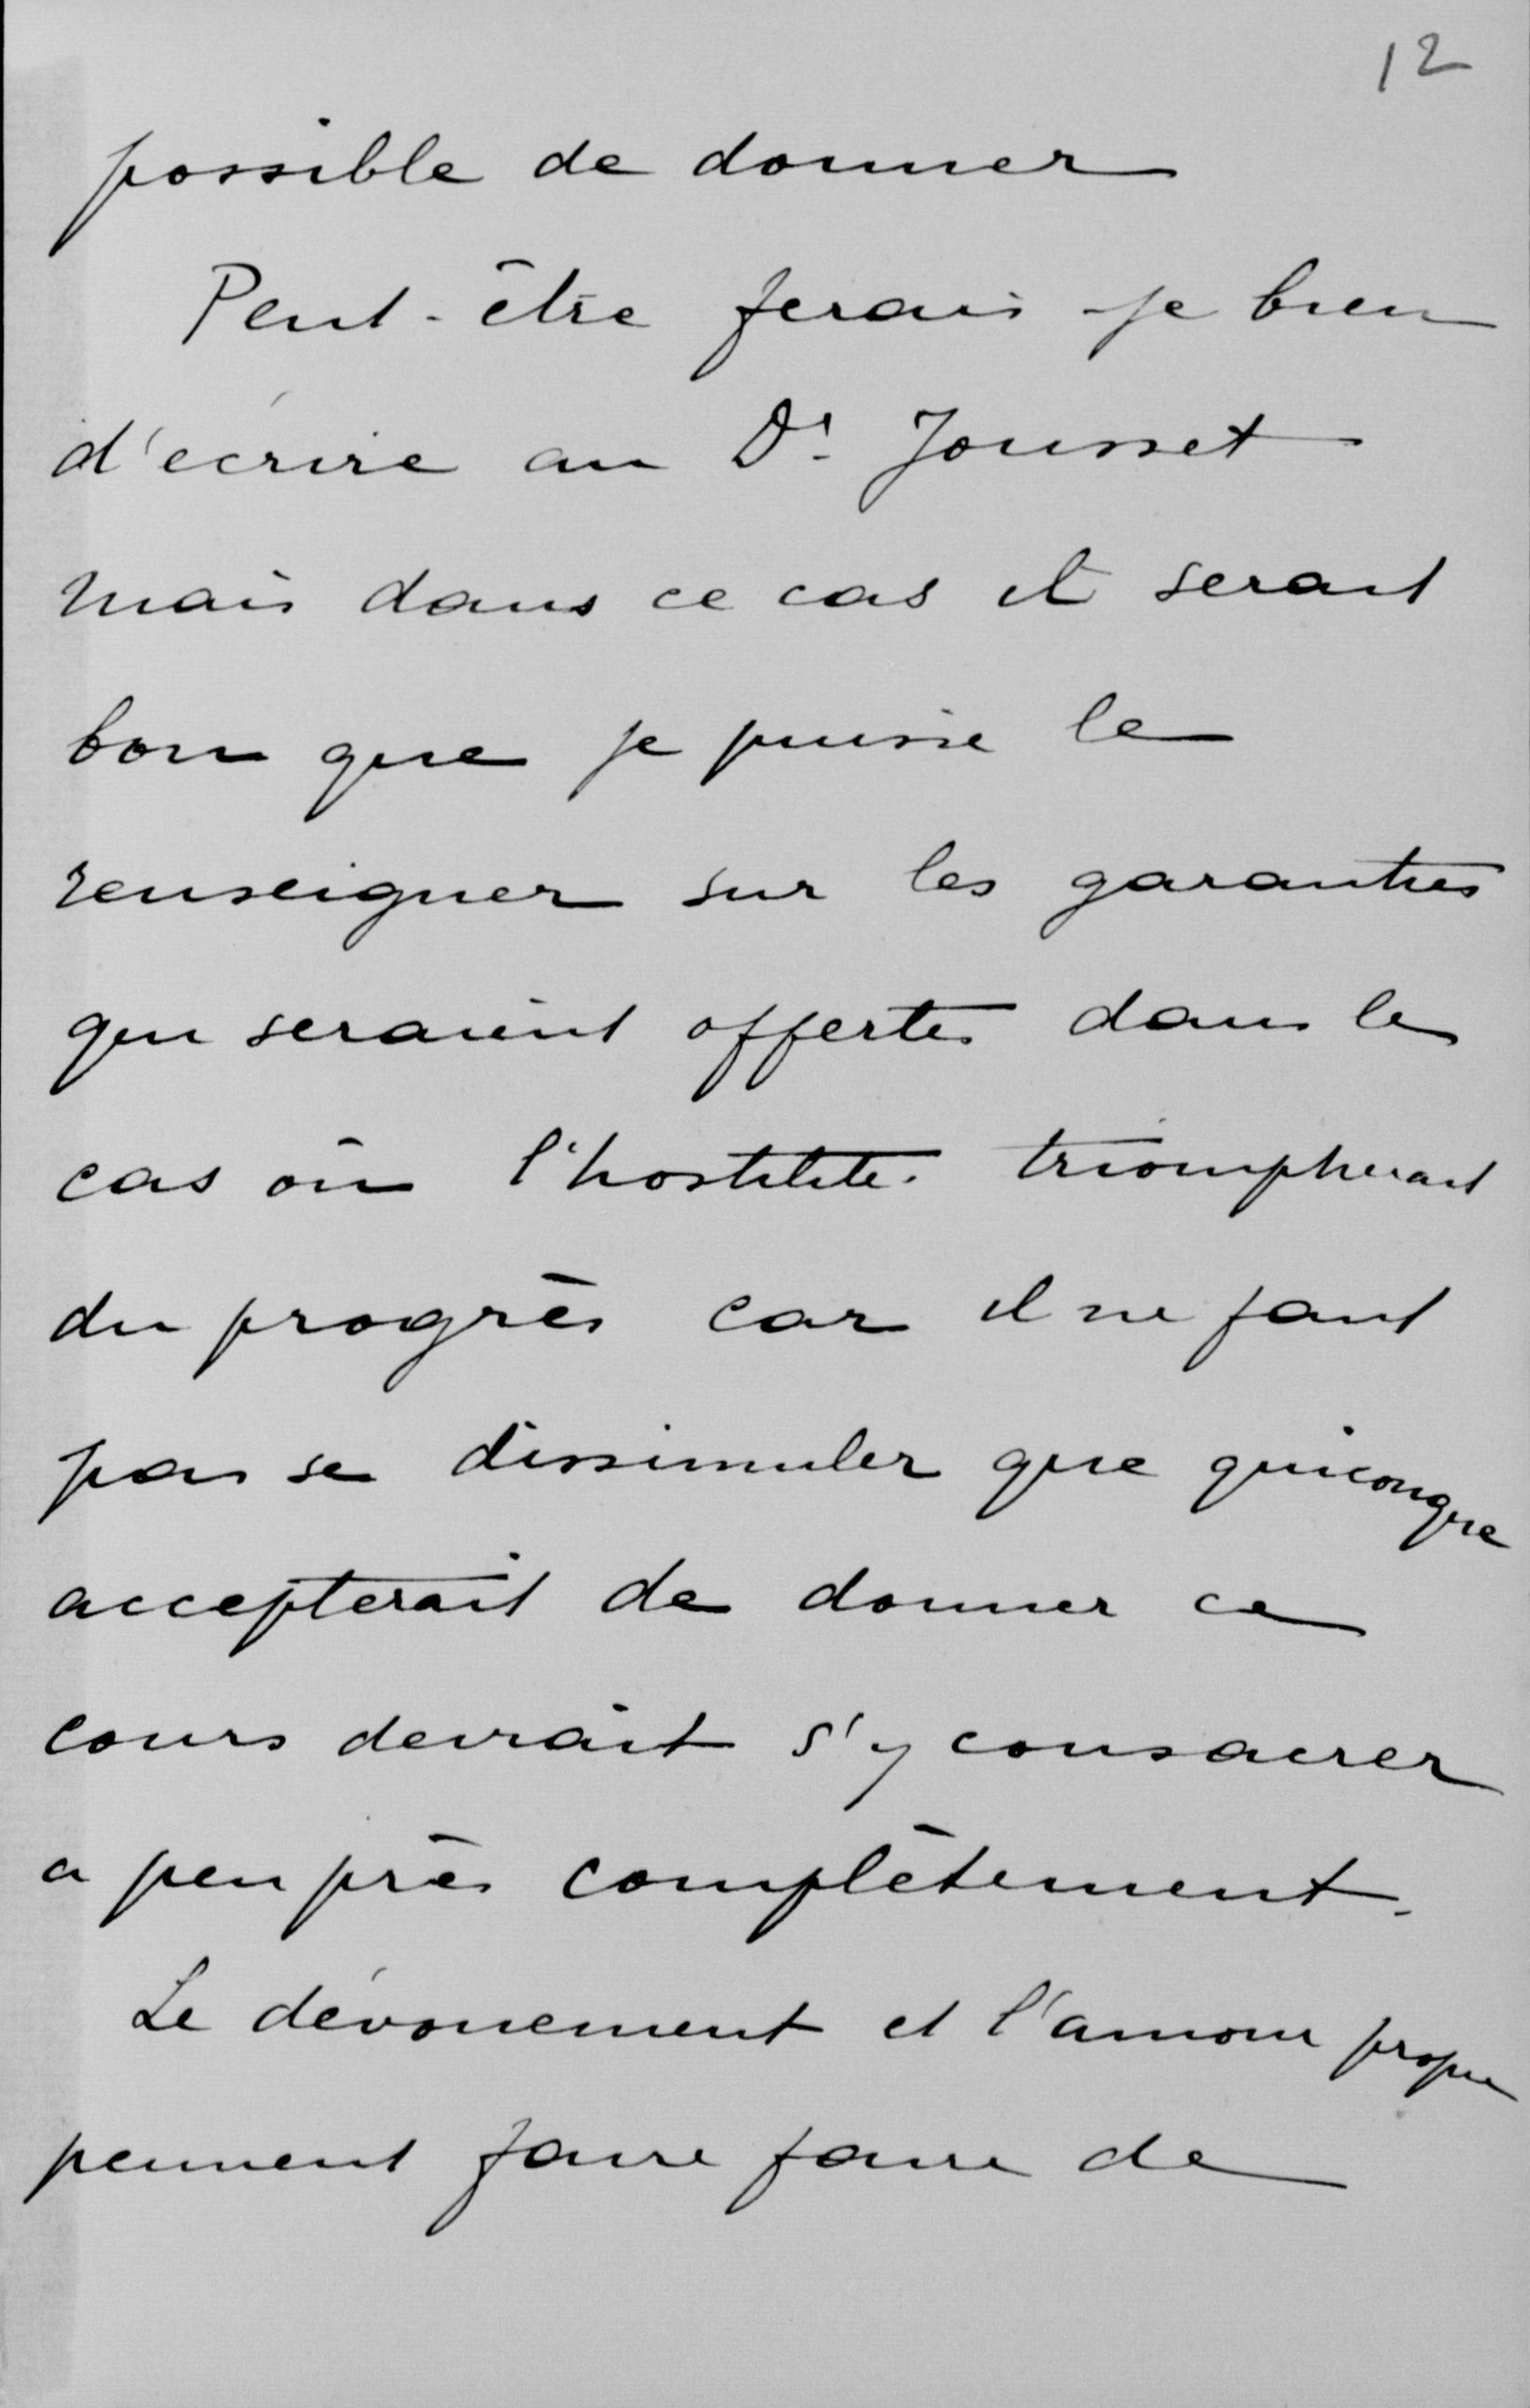 12
possible de donner
Peut-être ferais-je bien
d'écrire au Dr. Jousset
mais dans ce cas il serait
bon que je puisse le
renseigner sur les garanties
qui seraient offertes dans le
cas où l'hostilité triompherait
du progrès car il ne faut
pas se dissimuler que quiconque
accepterait de donner ce
cours devrait s'y consacrer
a peu près complètement.
Le dévouement et l'amour propre
peuvent faire faire de